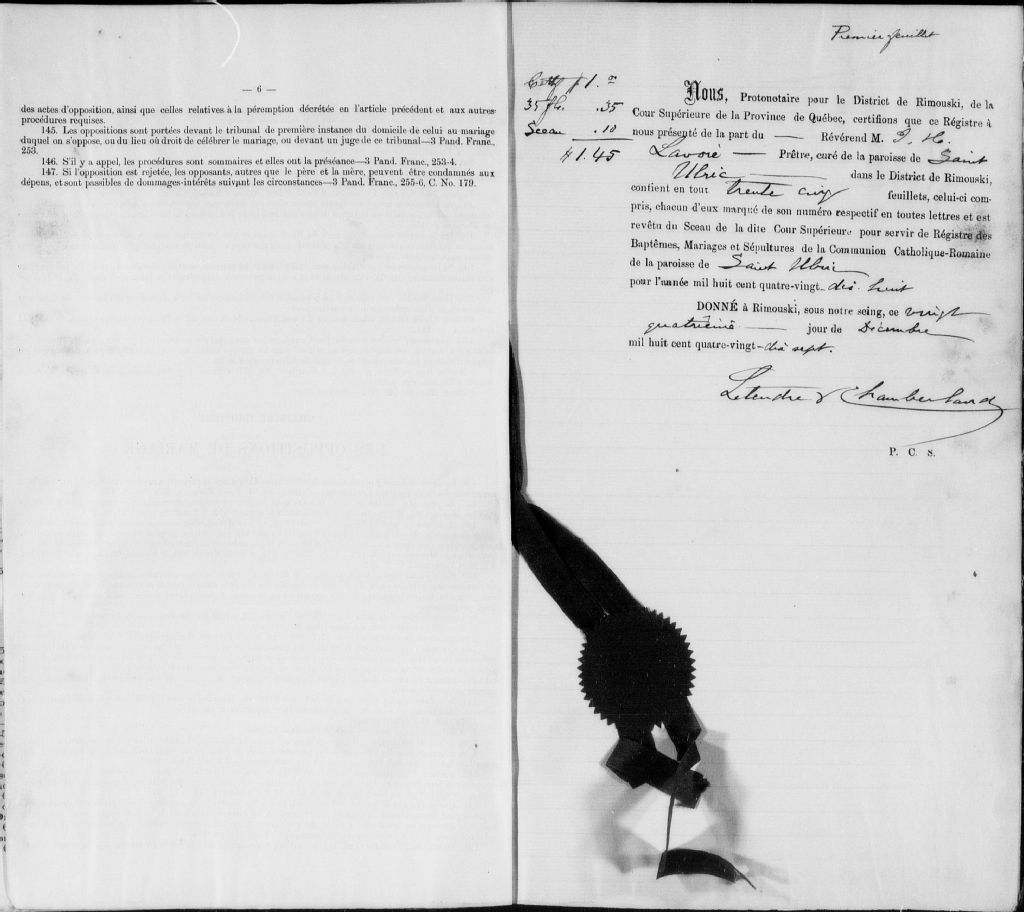 — 6 —
des actes d'opposition, ainsi que celles relatives à la péremption décrétée en l'article précédent et aux autres
procédures requises.
145. Les oppositions sont portées devant le tribunal de première instance du domicile de celui au mariage
duquel on s'oppose, ou du lieu où droit de célébrer le mariage, ou devant un juge de ce tribunal—3 Pand. Franc.,
253.
146. S'il y a appel, les procédures sont sommaires et elles ont la préséance—3 Pand. Franc., 253-4.
147. Si l'opposition est rejetée, les opposants, autres que le père et la mère, peuvent être condamnés aux
dépens, et sont passibles de dommages-intérêts suivant les circonstances—3 Pand. Franc., 255-6, C. No. 179.
Premier feuillet
$1.00
35 fls. .35
Sceau .10
$1.45
Nous, Protonotaire pour le District de Rimouski, de la
Cour Supérieure de la Province de Québec, certifions que ce Régistre à
nous présenté de la part du — Révérend M. J. H.
Lavoie — Prêtre, curé de la paroisse de Saint
Ulric — dans le District de Rimouski,
contient en tout trente cinq feuillets, celui-ci com-
pris, chacun d'eux marqué de son numéro respectif en toutes lettres et est
revêtu du Sceau de la dite Cour Supérieure pour servir de Régistre des
Baptêmes, Mariages et Sépultures de la Communion Catholique-Romaine
de la paroisse de Saint Ulric
pour l'année mil huit cent quatre-vingt-dix huit
DONNÉ à Rimouski, sous notre seing, ce vingt
quatrième — jour de Décembre
mil huit cent quatre-vingt-dix sept.
Letendre & Chamberland
P. C. S.